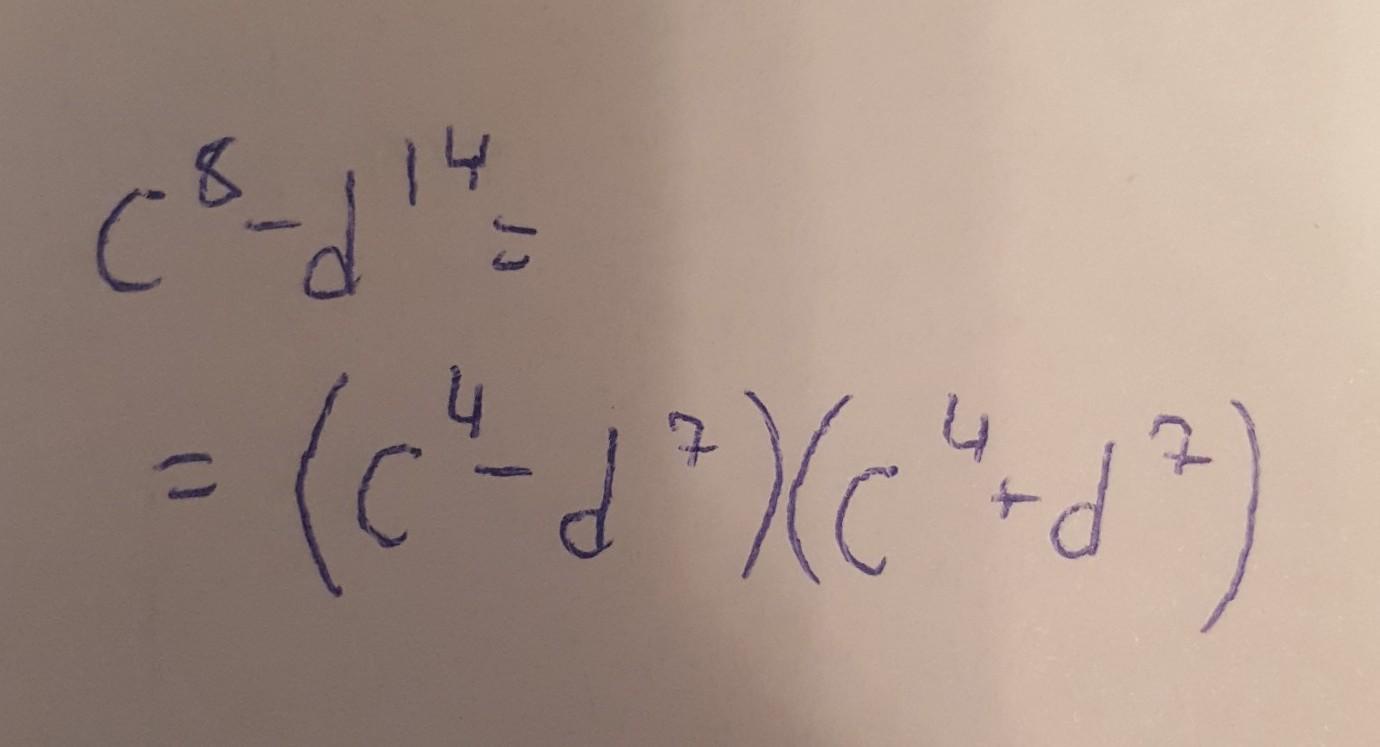 c⁸-d¹⁴=
=(c⁴-d⁷)(c⁴+d⁷)